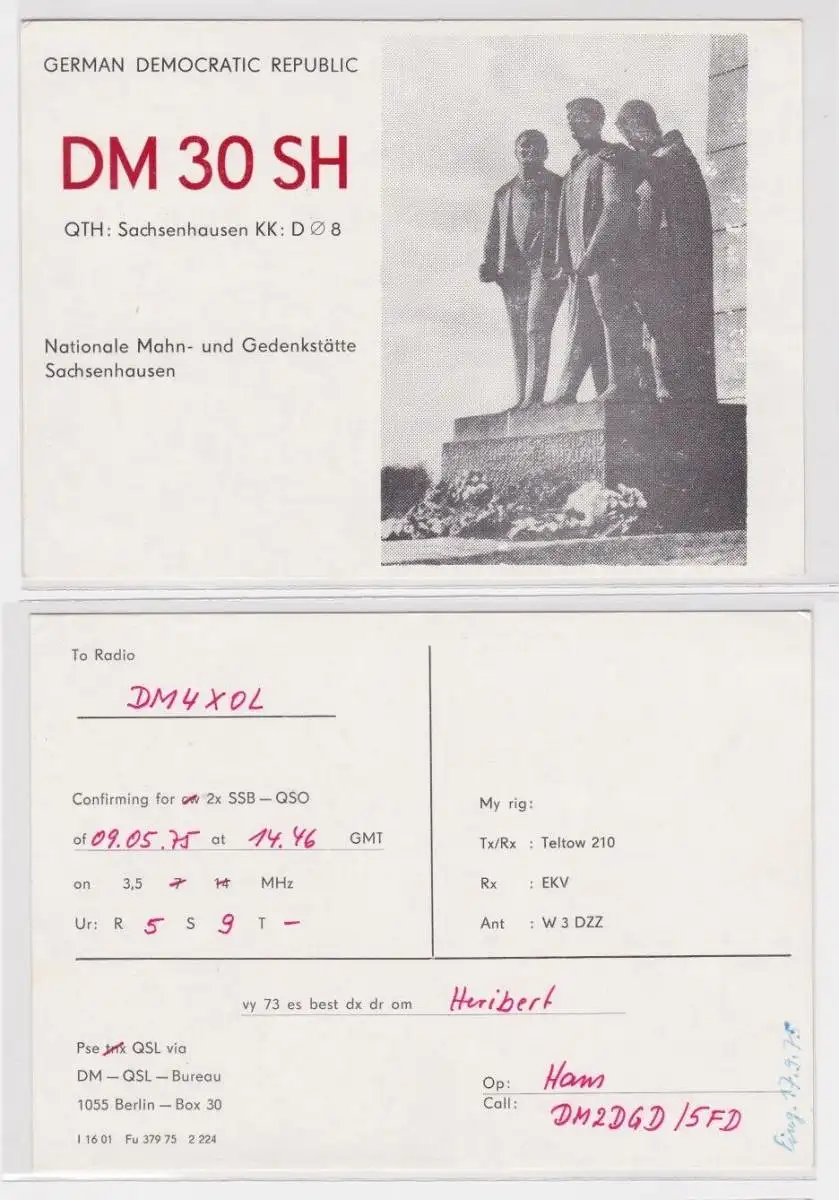 GERMAN DEMOCRATIC REPUBLIC
DM 30 SH
QTH: Sachsenhausen KK: D Ø 8
Nationale Mahn- und Gedenkstätte
Sachsenhausen
To Radio
DM4XOL
Confirming for cw 2x SSB — QSO
of 09.05.75 at 14.46 GMT
on 3,5 7 14 MHz
Ur: R 5 S 9 T –
My rig:
Tx/Rx : Teltow 210
Rx : EKV
Ant : W 3 DZZ
vy 73 es best dx dr om Heribert
Pse tnx QSL via
DM — QSL — Bureau
1055 Berlin — Box 30
I 16 01 Fu 379 75 2 224
Op: Hans
Call: DM2DGD/5FD
Eing. 17.9.75